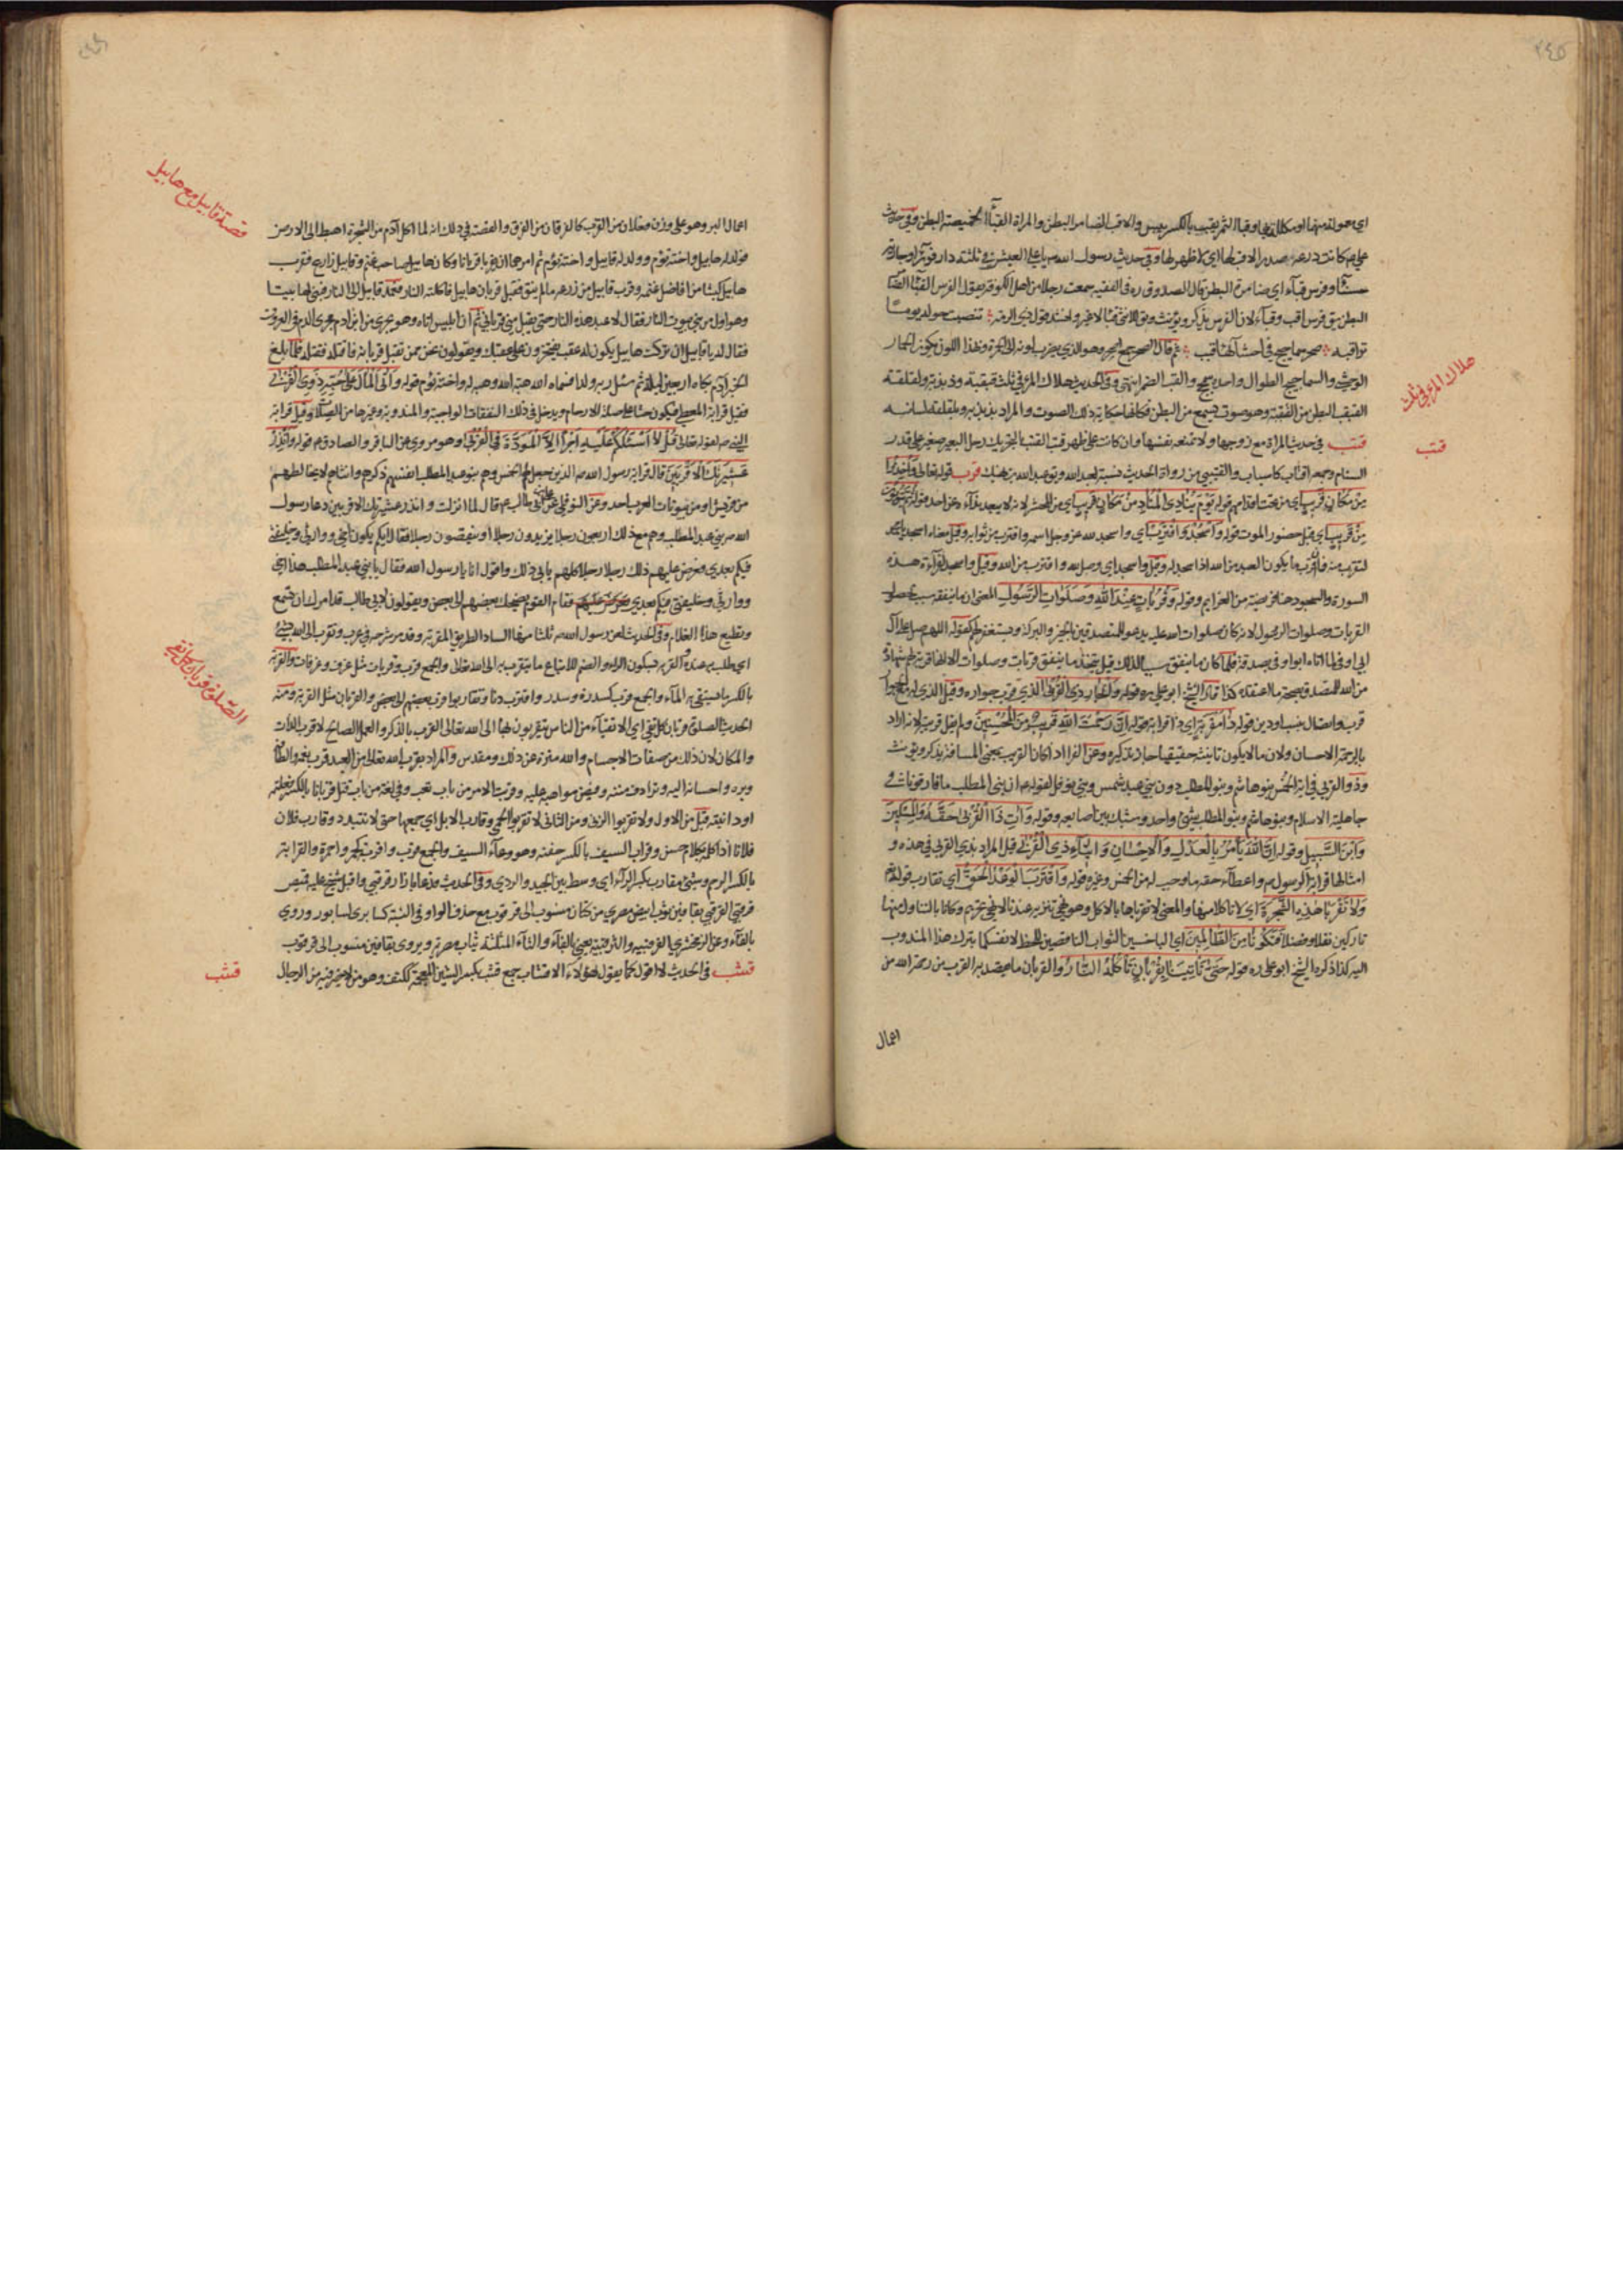 ٢٤٥
علي م كانت درعه صدر الا قب لها اى لا ظهر لها وفي حديث رسول الله ص يا علي العيش في ثلثة دار قوراء وجارية
حسناء وفرس قباء اى ضامرة البطن قال الصدوق ره في الفقيه سمعت رجلا من اهل الكوفة يقول الفرس القباء الضامر
البطن يق فرس اقب وقباء لان الفرس يذكر ويؤنث ويق للانثى قباء لا غير وانشد قول ذى الرمة تنصبت حوله يوما
تراقبه صحر سماحيج في احشائها قبب ثم قال الصحر جمع اصحر وهو الذي يضرب لونه الى الحمرة وهذا اللون يكون في الحمار
الوحشي والسماحيج الطوال واحدها سمحج والقبب الضمر انتهى وفي الحديث هلاك المرء في ثلث قبقبه وذبذبه ولقلقه
القبقب البطن من القبقبة وهو صوت يسمع من البطن فكانها حكاية ذلك الصوت والمراد بذبذبه ذكره وبلقلقه لسانه
هلاك المرء في ثلث
قتب في حديث المراة مع زوجها ولا تمنعه نفسها وان كانت على ظهر قتب القتب بالتحريك رحل البعير صغير على قدر
قتب
السنام وجمعه اقتاب كاسباب والقتيبي من رواة الحديث نسبة لعبد الله وتوعبد الله بن نهيك قرب قوله تعالى واخذوا
من مكان قريب اى من تحت اقدامهم قوله يوم يناد المناد من مكان قريب اى من المحشر لانه لا يبعد نداؤه عن احد قوله ثم يتوبون
من قريب اى قبل حضور الموت قوله واسجد واقترب اى واسجد لله عز وجل اسمه واقترب من ثوابه وقيل معناه اسجد يا محمد
لتقرب منه فان اقرب ما يكون العبد من الله اذا سجد له وقيل واسجد اى وصل لله واقترب من الله وقيل واسجد لقراءة هذه
السورة والسجود هنا فريضة من العزايم وقوله وقربات عند الله وصلوات الرسول المعنى ان ما ينفقه سبب لحصول
القربات وصلوات الرسول لانه كان صلوات الله عليه يدعو للمتصدقين بالخير والبركة ويستغفر لهم كقوله اللهم صل على آل
ابي اوفى لما اتاه ابو اوفى بصدقة فلما كان ما ينفق سببا لذلك قيل يتخذ ما ينفق قربات وصلوات الا انها قربة لهم شهادة
من الله للمتصدق بصحة ما اعتقده كذا قال الشيخ ابو علي ره قوله والجار ذى القربى الذي قرب جواره وقيل الذي له مع الجوار
قرب واتصال بنسب او دين قوله ذا مقربة اى ذا قرابة قوله ان رحمت الله قريب من المحسنين ولم يقل قريبة لانه اراد
بالرحمة الاحسان ولان ما لا يكون تانيثه حقيقيا جاز تذكيره وعن الفراء اذا كان القريب بمعنى المسافة يذكر ويؤنث
وذو القربى في اية الخمس بنو هاشم وبنو المطلب دون بني عبد شمس وبني نوفل لقوله ص ان بني المطلب ما فارقونا في
جاهلية ولا اسلام وبنو هاشم وبنو المطلب شئ واحد وشبك بين اصابعه وقوله وآت ذا القربى حقه والمسكين
وابن السبيل وقوله ان الله يامر بالعدل والاحسان وايتاء ذي القربى قيل المراد بذي القربى في هذه و
امثالها قرابة الرسول ص واعطاء حقه ما وجب له من الخمس وغيره قوله واقترب الوعد الحق اى تقارب قوله
ولا تقربا هذه الشجرة اى لا تاكلا منها والمعنى لا تقرباها بالاكل وهو نهي تنزيه عندنا لا نهي تحريم وكانا بالتناول منها
تاركين نفلا وفضلا فتكونا من الظالمين اى الباخسين الثواب الناقصين للحظ لانفسكما بترك هذا المندوب
اليه كذا ذكره الشيخ ابو علي ره قوله حتى تاتينا بقربان تاكله النار والقربان ما يقصد به القرب من رحمة الله من
اعمال
قصة قابيل مع هابيل
اعمال البر وهو على وزن فعلان من القرب كالفرقان من الفرق والقصة في ذلك انه لما اكل آدم من الشجرة اهبط الى الارض
فولد له هابيل واخته توم وولد له قابيل واخته توم ثم امرهما ان يقربا قربانا وكان هابيل صاحب غنم وقابيل زارع فقرب
هابيل كبشا من افاضل غنمه وقرب قابيل من زرعه ما لم ينق فقبل قربان هابيل فاكلته النار فعمد قابيل الى النار فبنى لها بيتا
وهو اول من بنى بيوت النار فقال لاعبد هذه النار حتى يقبل مني قرباني ثم ان ابليس اتاه وهو يجري من ابن ادم مجرى الدم في العروق
فقال له يا قابيل ان تركت هابيل يكون له عقب يفتخرون على عقبك ويقولون نحن ممن تقبل قربانه فاقتله فقتله فلما بلغ
الخبر آدم بكاه اربعين ليلة ثم سئل ربه ولدا فسماه الله هبة الله وهب له واخته توم قوله وآتى المال على حبه ذوي القربى
فقيل قرابة المعطي فيكون حثا على صلة الارحام ويدخل في ذلك النفقات الواجبة والمندوبة وغيرها من الصلات وقيل قرابة
النبي ص لقوله تعالى قل لا اسئلكم عليه اجرا الا المودة في القربى وهو مروي عن الباقر والصادق م قوله وانذر
عشيرتك الاقربين قال قرابة رسول الله ص الذين جعل لهم الخمس وهم بنو عبد المطلب انفسهم ذكرهم وانثاهم لا يخالطهم
من قريش او من بيوتات العرب احد وعن النوفلي عن علي بن ابي طالب م قال لما نزلت وانذر عشيرتك الاقربين دعا رسول
الله ص بني عبد المطلب وهم مع ذلك اربعون رجلا يزيدون رجلا او ينقصون رجلا فقال ايكم يكون اخي ووارثي وخليفتي
فيكم بعدي فعرض عليهم ذلك رجلا رجلا كلهم يابى ذلك واقول انا يا رسول الله فقال يا بني عبد المطلب هذا اخي
ووارثي وخليفتي فيكم بعدي فقام القوم يضحك بعضهم الى بعض ويقولون لابي طالب قد امرك ان تسمع
وتطيع هذا الغلام وفي الحديث لعن رسول الله ص ثلثا منها الساد الطريق المقربة وقد مر شرحه في عرب وتقرب الى الله بشئ
اى طلب به عنده القربة بسكون الراء والضم للاتباع ما يتقرب به الى الله تعالى والجمع قرب وقربات مثل غرف وغرفات والقربة
الصلوة قربان كل تقي
بالكسر ما يستقى به الماء والجمع قرب كسدرة وسدر واقترب دنا وتقاربوا قرب بعضهم الى بعض والقربان مثل القربة ومنه
الحديث الصلوة قربان كل تقي اى الاتقياء من الناس يتقربون بها الى الله تعالى القرب بالذكر والعمل الصالح لا قرب الذات
والمكان لان ذلك من صفات الاجسام والله منزه عن ذلك ومقدس والمراد بقرب الله تعالى من العبد قرب نعمه والطافه
وبره واحسانه اليه وترادف مننه وفيض مواهبه عليه وقربت الامر من باب تعب وفي لغة من باب قتل قربانا بالكسر فعلته
او دانيته قيل من الاول ولا تقربوا الزنى ومن الثاني لا تقربوا الحمى وقارب الابل اى جمعها حتى لا تتبدد وقارب فلان
فلانا اذا كلمه بكلام حسن وقراب السيف بالكسر جفنه وهو وعاء السيف والجمع قرب واقربة كحمر واحمرة والقرابة
بالكسر الرحم وشئ مقارب بكسر الراء اى وسط بين الجيد والردي وفي الحديث فدعا بازار قرقبي واقبل شيخ عليه قميص
قرقبي القرقبي بقافين ثوب ابيض مصري من كتان منسوب الى قرقوب مع حذف الواو في النسبة كسابري لسابور وروي
بالفاء وعن الزمخشري الفرقبية والثرقبية يعني بالفاء والثاء المثلثة ثياب مصرية ويروى بقافين منسوب الى قرقوب
قشب في الحديث لا اقول كما يقول هؤلاء الاقشاب جمع قشب بكسر الشين المعجمة ككتف وهو من لا خير فيه من الرجال
قشب